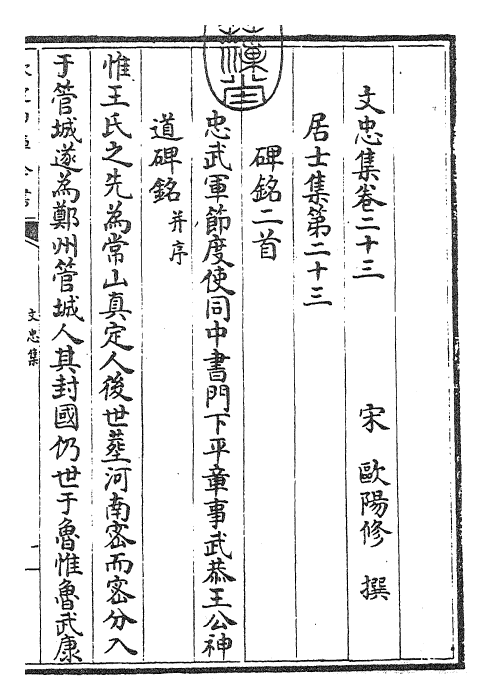 文忠集卷二十三　宋　歐陽修　撰
居士集第二十三
碑銘二首
忠武軍節度使同中書門下平章事武恭王公神
道碑銘并序
惟王氏之先為常山真定人後世葬河南密而密分入
于管城遂為鄭州管城人其封國仍世于魯惟魯武康
文忠集